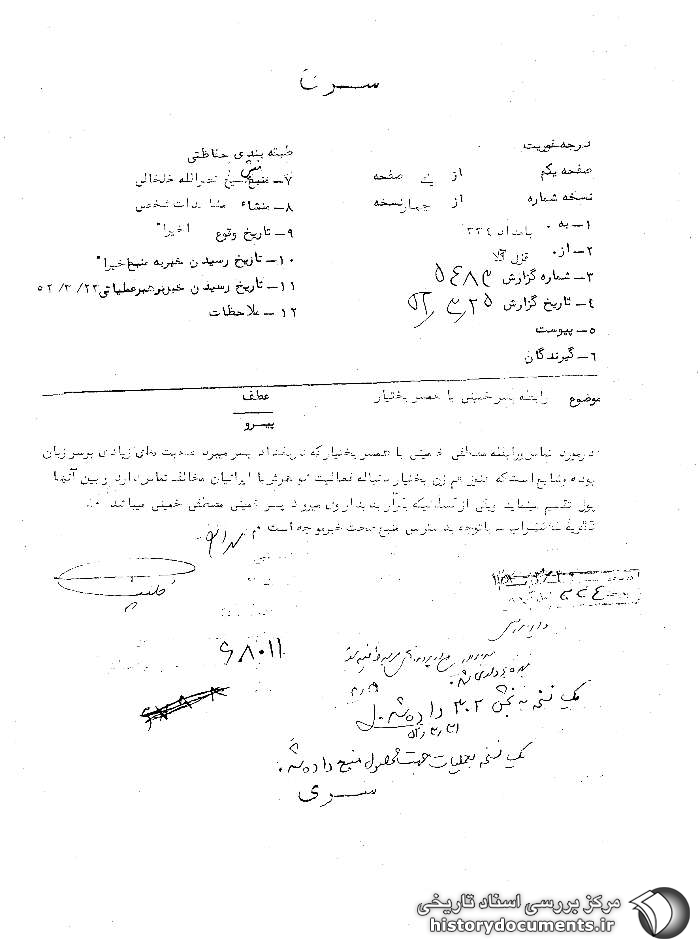 سری
درجه فوریت
صفحه یکم از یک صفحه
نسخه شماره از چهار نسخه
۱- به بامداد ۳۳۴
۲- از
۳- شماره گزارش ۵۴۸۳
۴- تاریخ گزارش ۵۲/۳/۲۵
۵- پیوست
۶- گیرندگان
طبقه بندی حفاظتی
۷- منبع شیخ نصرالله خلخالی
۸- منشاء مشاهدات شخص
۹- تاریخ وقوع اخیرا"
۱۰- تاریخ رسیدن خبر به منبع اخیرا"
۱۱- تاریخ رسیدن خبر برهبر عملیاتی ۵۲/۳/۲۳
۱۲- ملاحظات
موضوع رابطه پسر خمینی با همسر بختیار
عطف
پیرو
در مورد تماس و رابطه مصطفی خمینی با همسر بختیار که در بغداد بسر میبرد صحبت های زیادی بر سر زبان
بوده و شایع است که هنوز هم زن بختیار دنباله فعالیت شوهرش با ایرانیان مخالف تماس دارد و بین آنها
پول تقسیم مینماید و یکی از کسانیکه بدیدار وی میرود پسر خمینی مصطفی خمینی میباشد.
با توجه به دسترسی منبع صحت خبر موجه است
۶۸۰۱۱
۳۳۴
یک نسخه به بخش ۳۰۲ داده شد.
۵۲/۳/۳۱
یک نسخه بعملیات جهت محصول منبع داده شد.
سری
مرکز بررسی اسناد تاریخی
historydocuments.ir